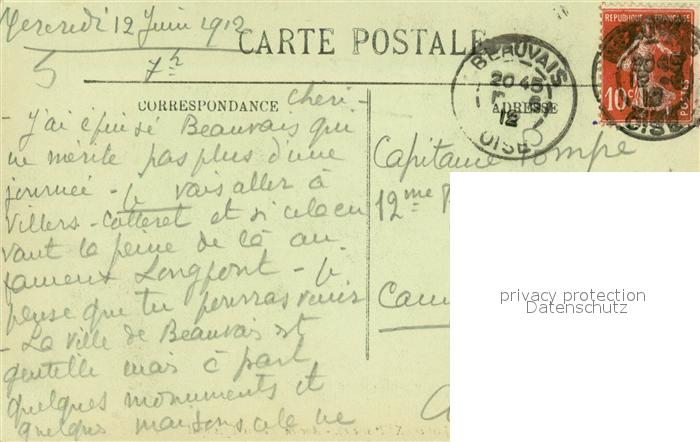 Mercredi 12 Juin 1912
5 7h
CARTE POSTALE
CORRESPONDANCE
ADRESSE
RÉPUBLIQUE FRANÇAISE
10c
POSTES
BEAUVAIS
20 45
12
OISE
Chéri -
- J'ai épuisé Beauvais qui
ne mérite pas plus d'une
journée - je vais aller à
Villers-Cotteret et si cela en
vaut la peine de là au
fameux Longpont - je
pense que tu pourras venir
- La ville de Beauvais est
gentille mais à part
quelques monuments et
quelques maisons cela ne
Capitaine Pompe
12me
privacy protection
Datenschutz